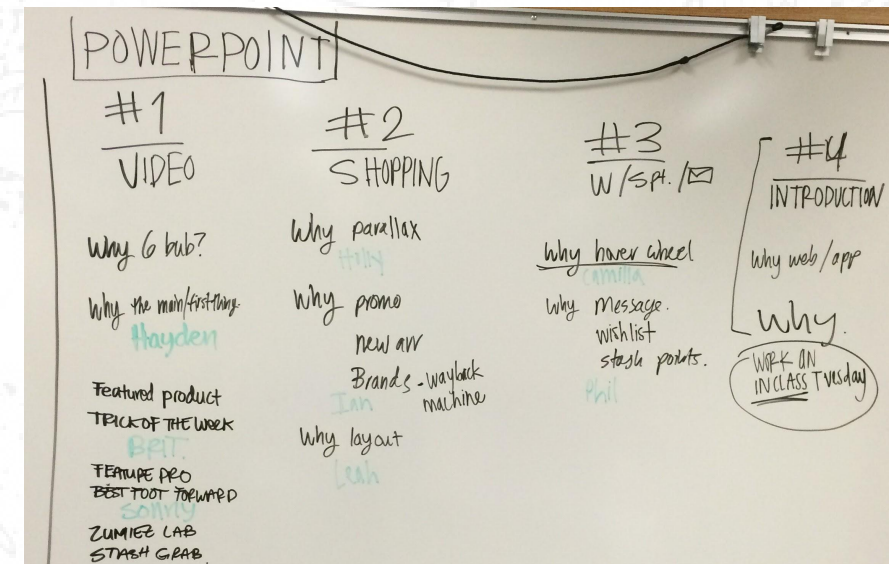 POWERPOINT
#1
VIDEO
Why 6 bub?
Why the main/first thing.
Hayden
Featured product
TRICK OF THE WEEK
BRIT.
FEATURE PRO
BEST FOOT FORWARD
Sonny
ZUMIEZ LAB
STASH GRAB
#2
SHOPPING
Why parallax
Holly
Why promo
new arr
Brands - wayback
machine
Ian
Why layout
Leah
#3
W/Spt./
Why hover wheel
Camilla
Why Message.
wishlist
stash points.
Phil
#4
INTRODUCTION
Why web/app
Why.
WORK ON
IN CLASS Tuesday